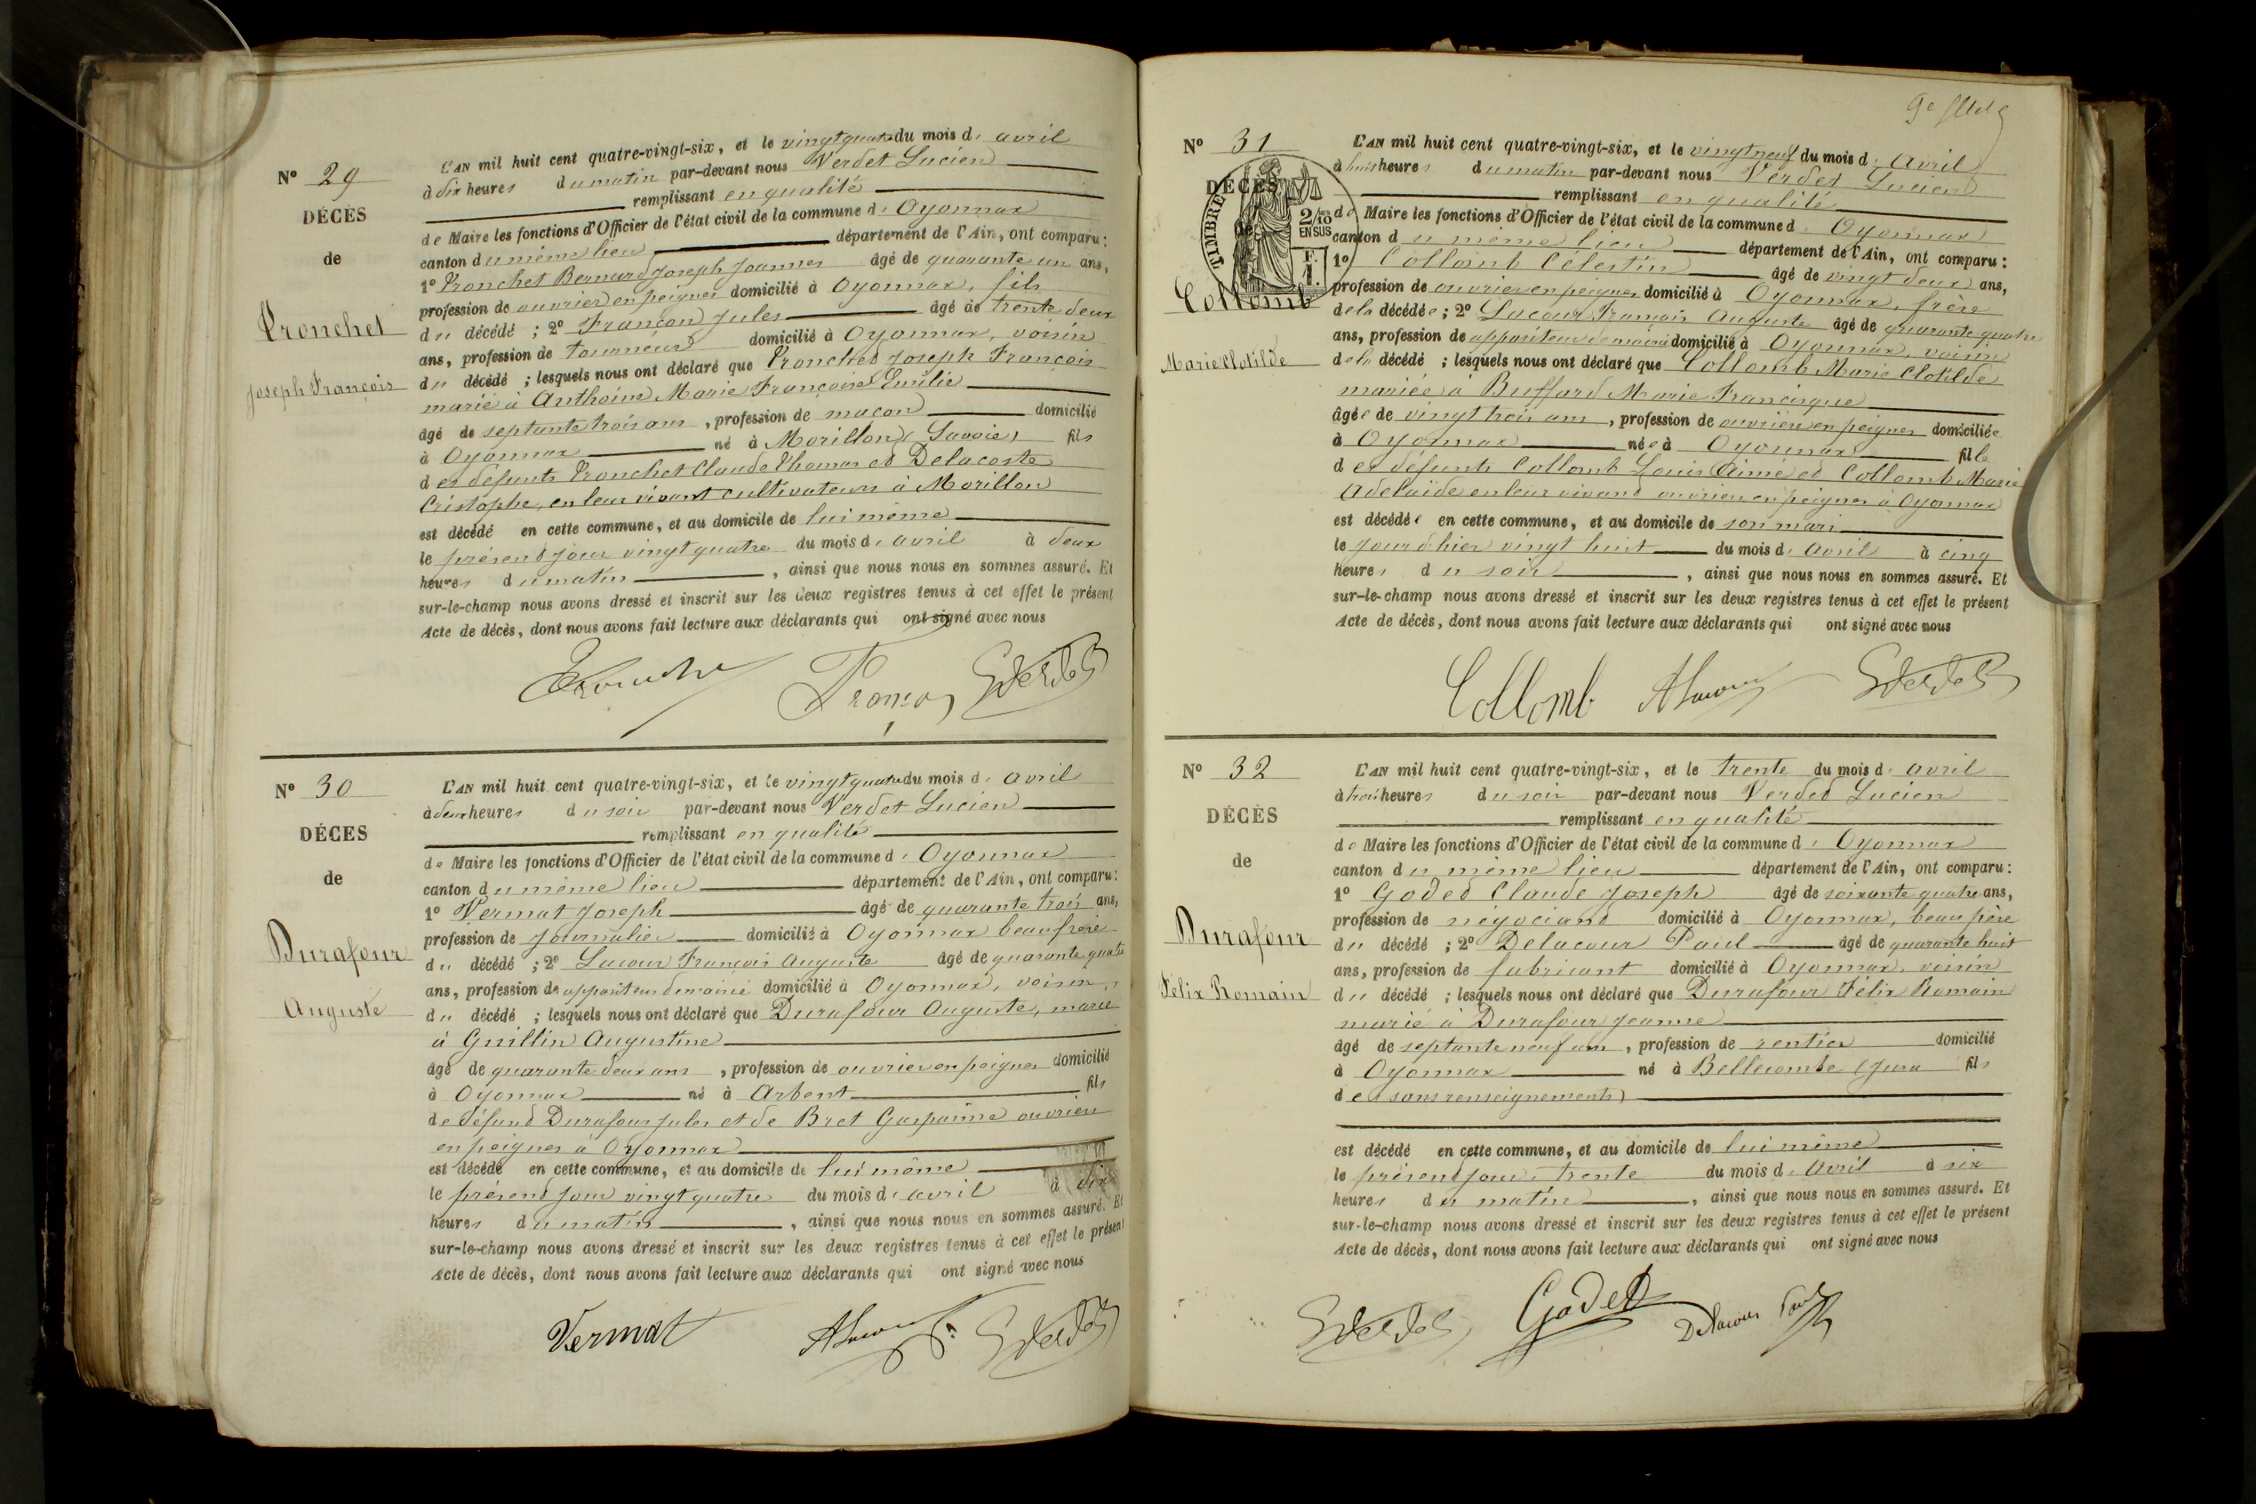 Nº 29
DÉCÈS
de
Tronchet
Joseph François
L'AN mil huit cent quatre-vingt-six, et le vingtquatre du mois d'avril
à dix heures du matin par-devant nous Verdet Lucien
remplissant en qualité
de Maire les fonctions d'Officier de l'état civil de la commune d'Oyonnax
canton du même lieu département de l'Ain, ont comparu :
1º Tronchet Bernard Joseph Joannes âgé de quarante un ans,
profession de ouvrier en peignes domicilié à Oyonnax, fils
du décédé ; 2º Françon Jules âgé de trente deux
ans, profession de tourneur domicilié à Oyonnax, voisin
du décédé ; lesquels nous ont déclaré que Tronchet Joseph François
marié à Anthoine Marie Françoise Emilie
âgé de septante trois ans, profession de maçon domicilié
à Oyonnax né à Morillon (Savoie) fils
des défunts Tronchet Claude Thomas et Delacoste
Cristophe, en leur vivant cultivateurs à Morillon
est décédé en cette commune, et au domicile de lui même
le présent jour vingt quatre du mois d'avril à deux
heures du matin, ainsi que nous nous en sommes assuré. Et
sur-le-champ nous avons dressé et inscrit sur les deux registres tenus à cet effet le présent
Acte de décès, dont nous avons fait lecture aux déclarants qui ont signé avec nous
Tronche Françon GVerdet
Nº 30
DÉCES
de
Durafour
Auguste
L'AN mil huit cent quatre-vingt-six, et le vingtquatre du mois d'avril
à deux heures du soir par-devant nous Verdet Lucien
remplissant en qualité
de Maire les fonctions d'Officier de l'état civil de la commune d'Oyonnax
canton du même lieu département de l'Ain, ont comparu :
1º Vermat Joseph âgé de quarante trois ans,
profession de journalier domicilié à Oyonnax beau frère
du décédé ; 2º Lacour François Auguste âgé de quarante quatre
ans, profession de appariteur de mairie domicilié à Oyonnax, voisin,
du décédé ; lesquels nous ont déclaré que Durafour Auguste, marié
à Guillin Augustine
âgé de quarante deux ans, profession de ouvrier en peignes domicilié
à Oyonnax né à Arbent fils
de défund Durafour Jules et de Bret Gasparine ouvrière
en peignes à Oyonnax
est décédé en cette commune, et au domicile de lui même
le présent jour vingt quatre du mois d'avril à dix
heures du matin, ainsi que nous nous en sommes assuré. Et
sur-le-champ nous avons dressé et inscrit sur les deux registres tenus à cet effet le présent
Acte de décès, dont nous avons fait lecture aux déclarants qui ont signé avec nous
Vermat ALacour GVerdet
9e
Nº 31
DÉCÈS
de
TIMBRE
2/10 EN SUS
F. 1.
Collomb
Marie Clotilde
L'AN mil huit cent quatre-vingt-six, et le vingtneuf du mois d'avril
à huit heures du matin par-devant nous Verdet Lucien
remplissant en qualité
de Maire les fonctions d'Officier de l'état civil de la commune d'Oyonnax
canton du même lieu département de l'Ain, ont comparu :
1º Collomb Célestin âgé de vingt deux ans,
profession de ouvrier en peignes domicilié à Oyonnax, frère
de la décédée ; 2º Lacour François Auguste âgé de quarante quatre
ans, profession de appariteur de mairie domicilié à Oyonnax, voisin
de la décédé ; lesquels nous ont déclaré que Collomb Marie Clotilde
mariée à Buffard Marie Francisque
âgée de vingt trois ans, profession de ouvrière en peignes domiciliée
à Oyonnax née à Oyonnax fille
des défunts Collomb Louis Aimé et Collomb Marie
Adelaïde en leur vivant ouvriers en peignes à Oyonnax
est décédée en cette commune, et au domicile de son mari
le jour d'hier vingt huit du mois d'avril à cinq
heures du soir, ainsi que nous nous en sommes assuré. Et
sur-le-champ nous avons dressé et inscrit sur les deux registres tenus à cet effet le présent
Acte de décès, dont nous avons fait lecture aux déclarants qui ont signé avec nous
Collomb ALacour GVerdet
Nº 32
DÉCÈS
de
Durafour
Félix Romain
L'AN mil huit cent quatre-vingt-six, et le trente du mois d'avril
à trois heures du soir par-devant nous Verdet Lucien
remplissant en qualité
de Maire les fonctions d'Officier de l'état civil de la commune d'Oyonnax
canton du même lieu département de l'Ain, ont comparu :
1º Godet Claude Joseph âgé de soixante quatre ans,
profession de négociant domicilié à Oyonnax, beau père
du décédé ; 2º Delacour Paul âgé de quarante huit
ans, profession de fabricant domicilié à Oyonnax, voisin
du décédé ; lesquels nous ont déclaré que Durafour Félix Romain
marié à Durafour Jeanne
âgé de septante neuf ans, profession de rentier domicilié
à Oyonnax né à Bellecombe (Jura fils
de (sans renseignements)
est décédé en cette commune, et au domicile de lui même
le présent jour, trente du mois d'avril à six
heures du matin, ainsi que nous nous en sommes assuré. Et
sur-le-champ nous avons dressé et inscrit sur les deux registres tenus à cet effet le présent
Acte de décès, dont nous avons fait lecture aux déclarants qui ont signé avec nous
GVerdet Godet Delacour Paul